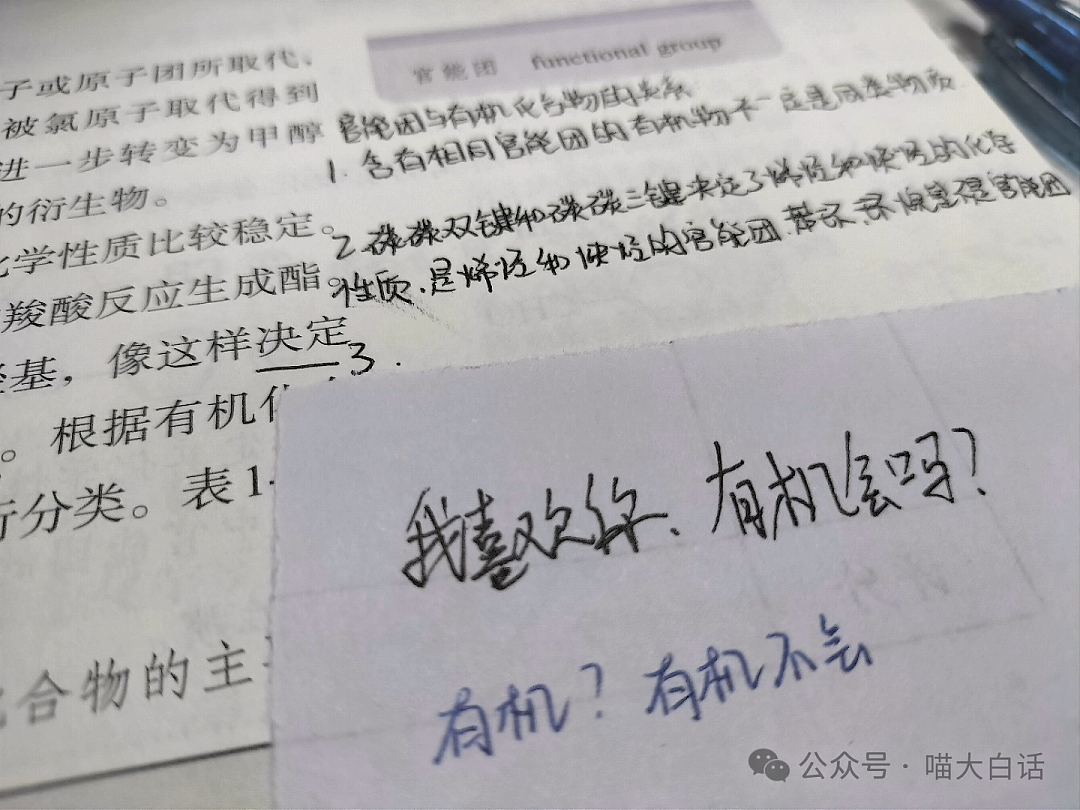 子或原子团所取代、
被氯原子取代得到
进一步转变为甲醇
的衍生物。
化学性质比较稳定。
羧酸反应生成酯。
基，像这样决定
。根据有机化
行分类。表1-
化合物的主
官能团 functional group
官能团与有机化合物的关系
1. 含有相同官能团的有机物不一定是同类物质
2. 碳碳双键和碳碳三键决定了烯烃和炔烃的化学
性质，是烯烃和炔烃的官能团，苯环、不是官能团
3.
我喜欢你、有机会吗？
有机？有机不会
公众号·喵大白话